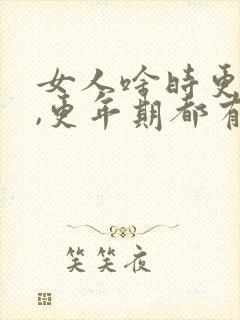 女人啥时更
,更年期都有
笑笑夜